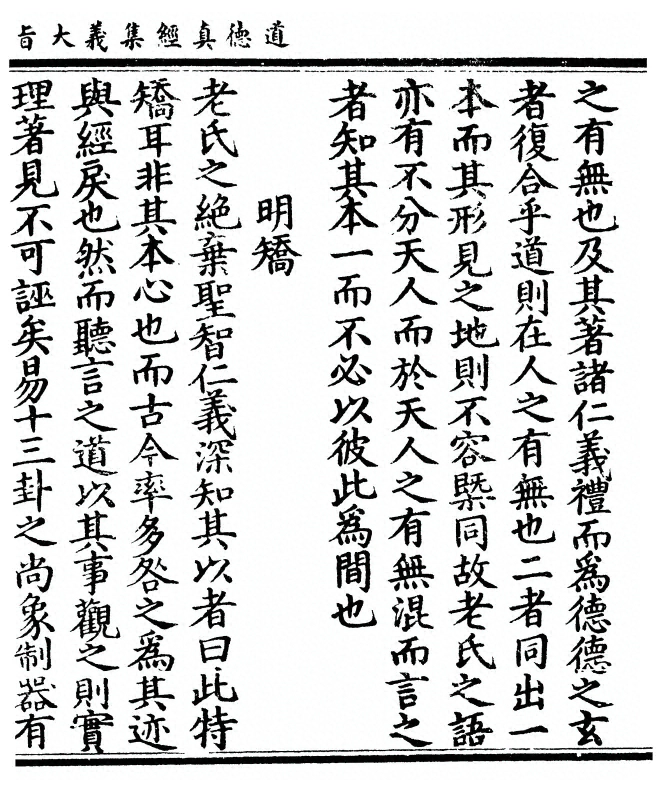 道德真經集義大旨
之有無也及其著諸仁義禮而爲德德之玄
者復合乎道則在人之有無也二者同出一
本而其形見之地則不容槩同故老氏之語
亦有不分天人而於天人之有無混而言之
者知其本一而不必以彼此爲間也
明矯
老氏之絶棄聖智仁義深知其以者曰此特
矯耳非其本心也而古今率多咎之爲其迹
與經戾也然而聽言之道以其事觀之則實
理著見不可誣矣易十三卦之尚象制器有